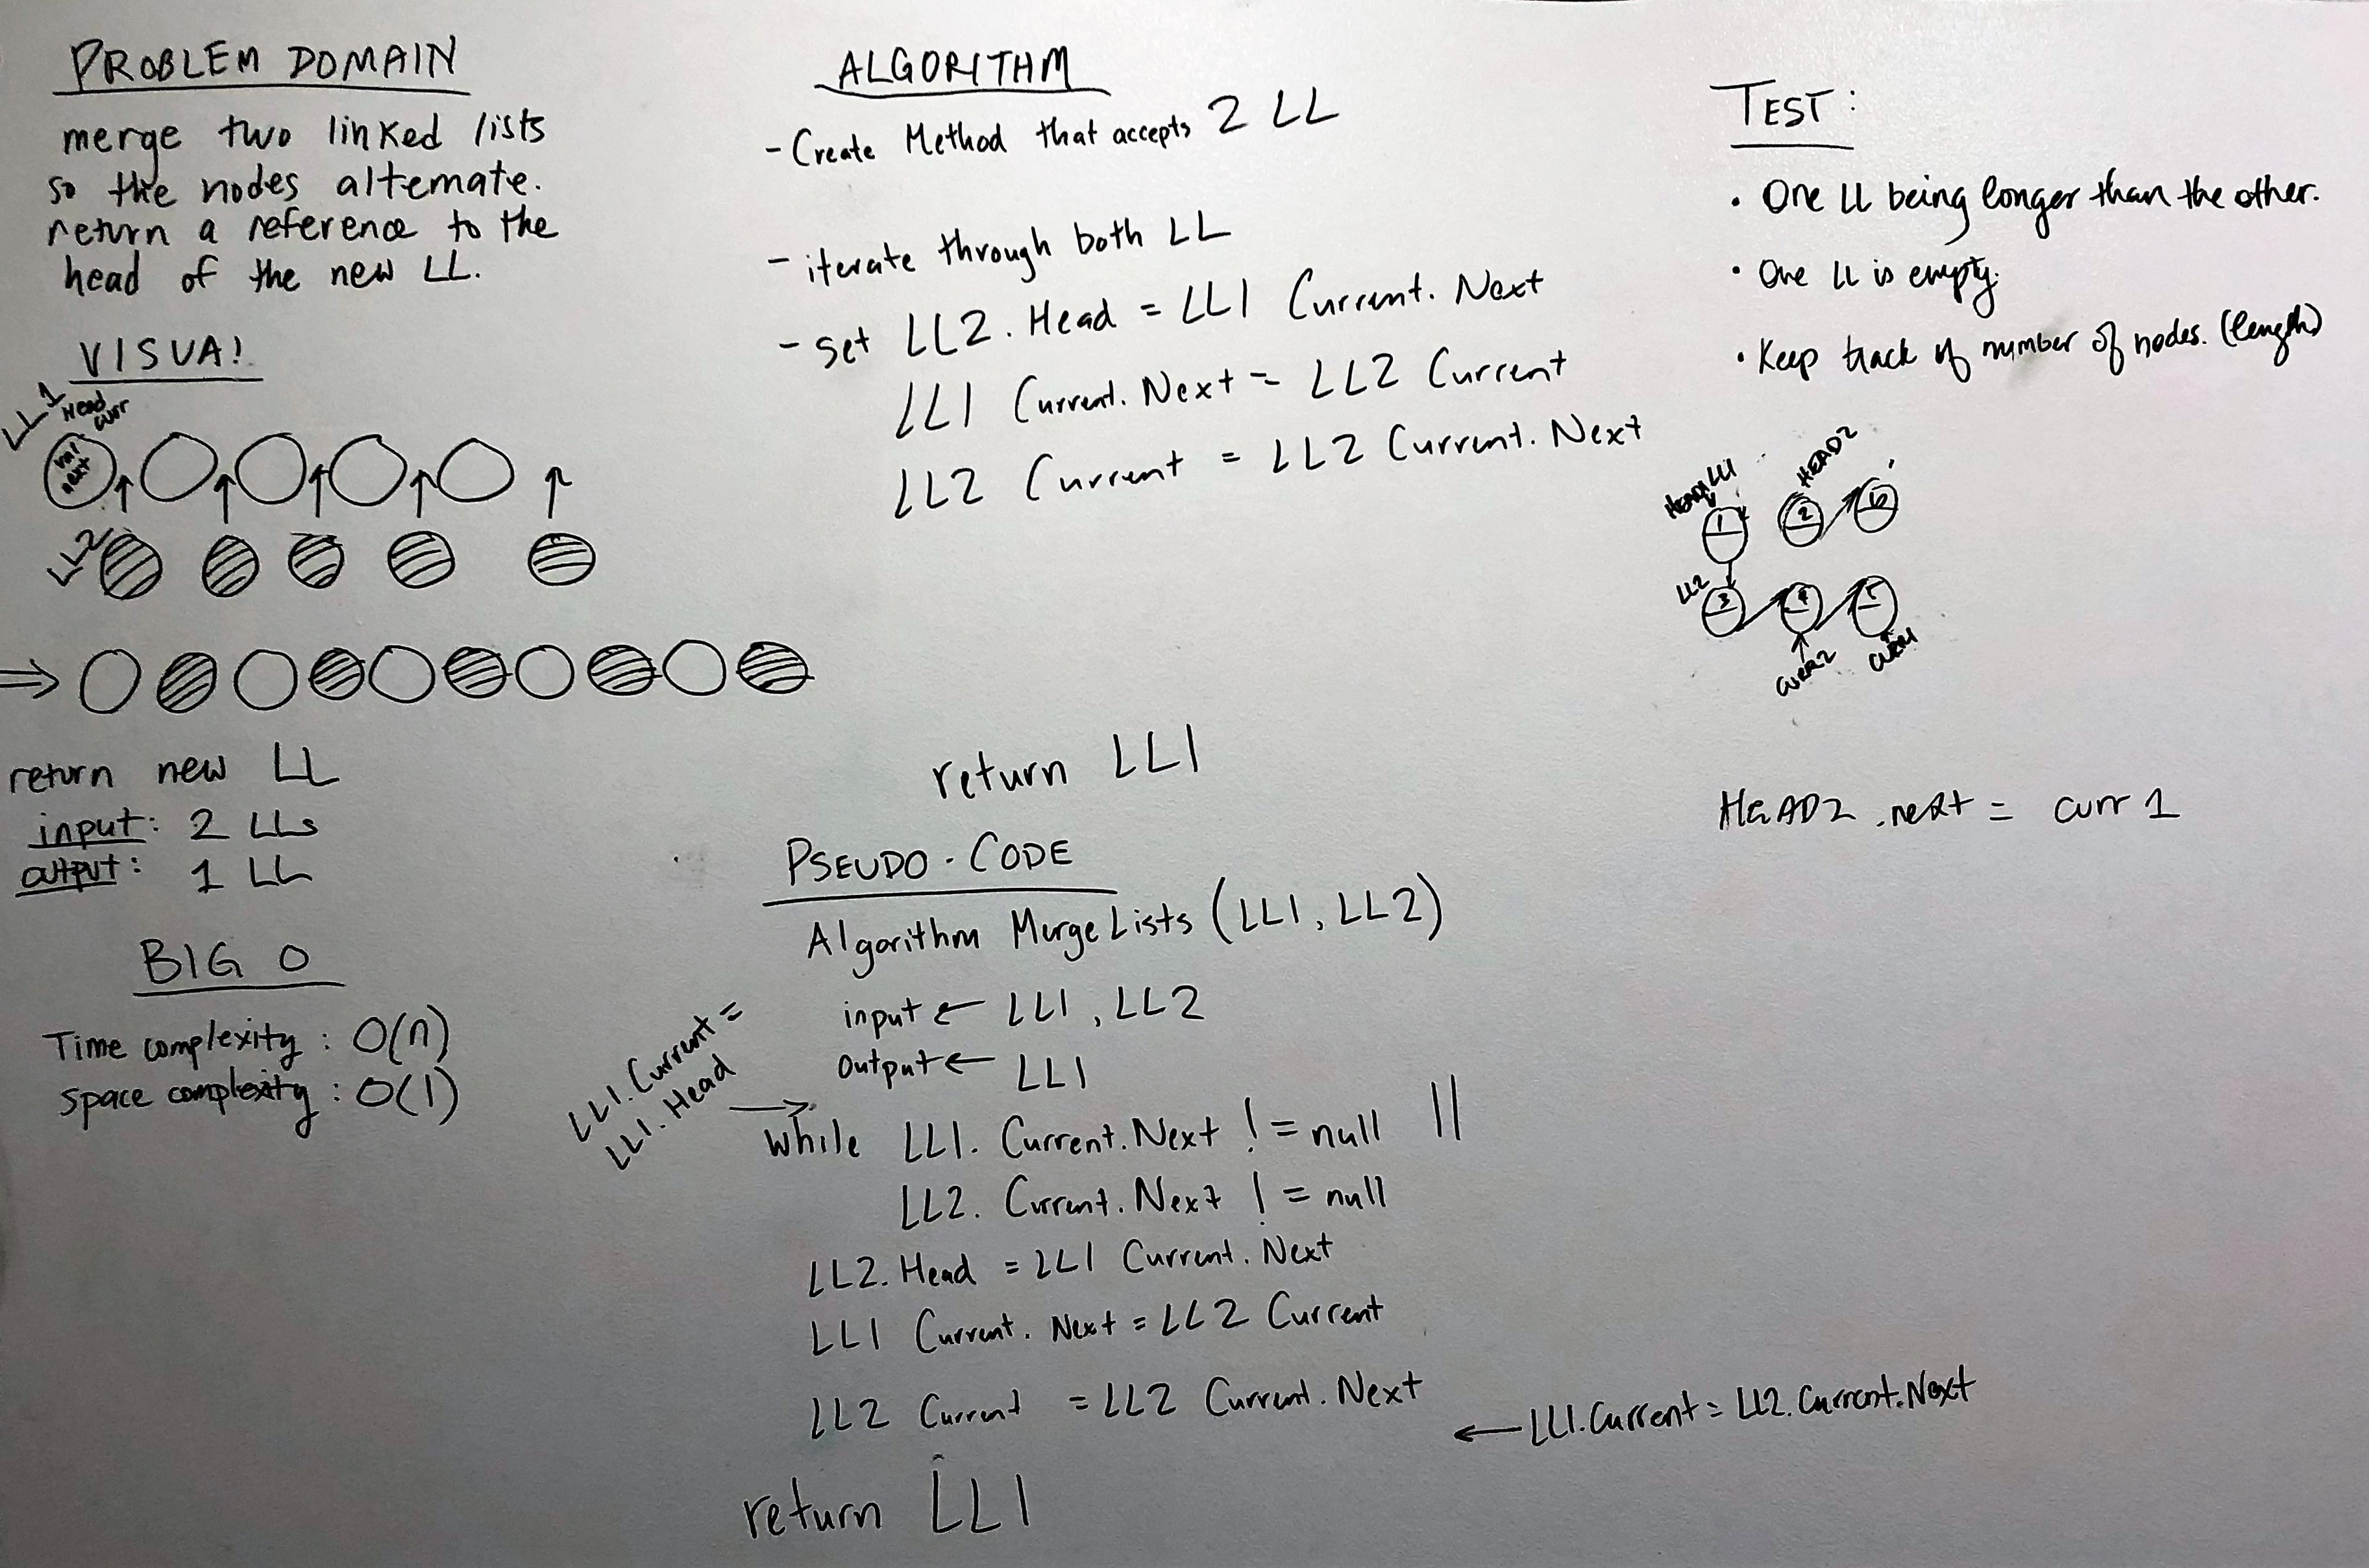 PROBLEM DOMAIN
merge two linked lists
so the nodes alternate.
return a reference to the
head of the new LL.
VISUAl
LL1
Head
curr
val
next
LL2
return new LL
input: 2 LLs
output: 1 LL
BIG O
Time complexity: O(n)
Space complexity: O(1)
ALGORITHM
- Create Method that accepts 2 LL
- iterate through both LL
- set LL2.Head = LL1 Current.Next
LL1 Current.Next = LL2 Current
LL2 Current = LL2 Current.Next
return LL1
PSEUDO-CODE
Algorithm MergeLists (LL1, LL2)
input ← LL1, LL2
Output ← LL1
LL1.Current =
LL1.Head
while LL1.Current.Next != null ||
LL2.Current.Next != null
LL2.Head = LL1 Current.Next
LL1 Current.Next = LL2 Current
LL2 Current = LL2 Current.Next
← LL1.Current = LL2.Current.Next
return LL1
TEST:
• One LL being longer than the other.
• One LL is empty.
• Keep track of number of nodes. (length)
HEAD1 LL1
HEAD2
1 2 6
LL2
3 4 5
CURR2
CURR1
HEAD2.next = curr 1